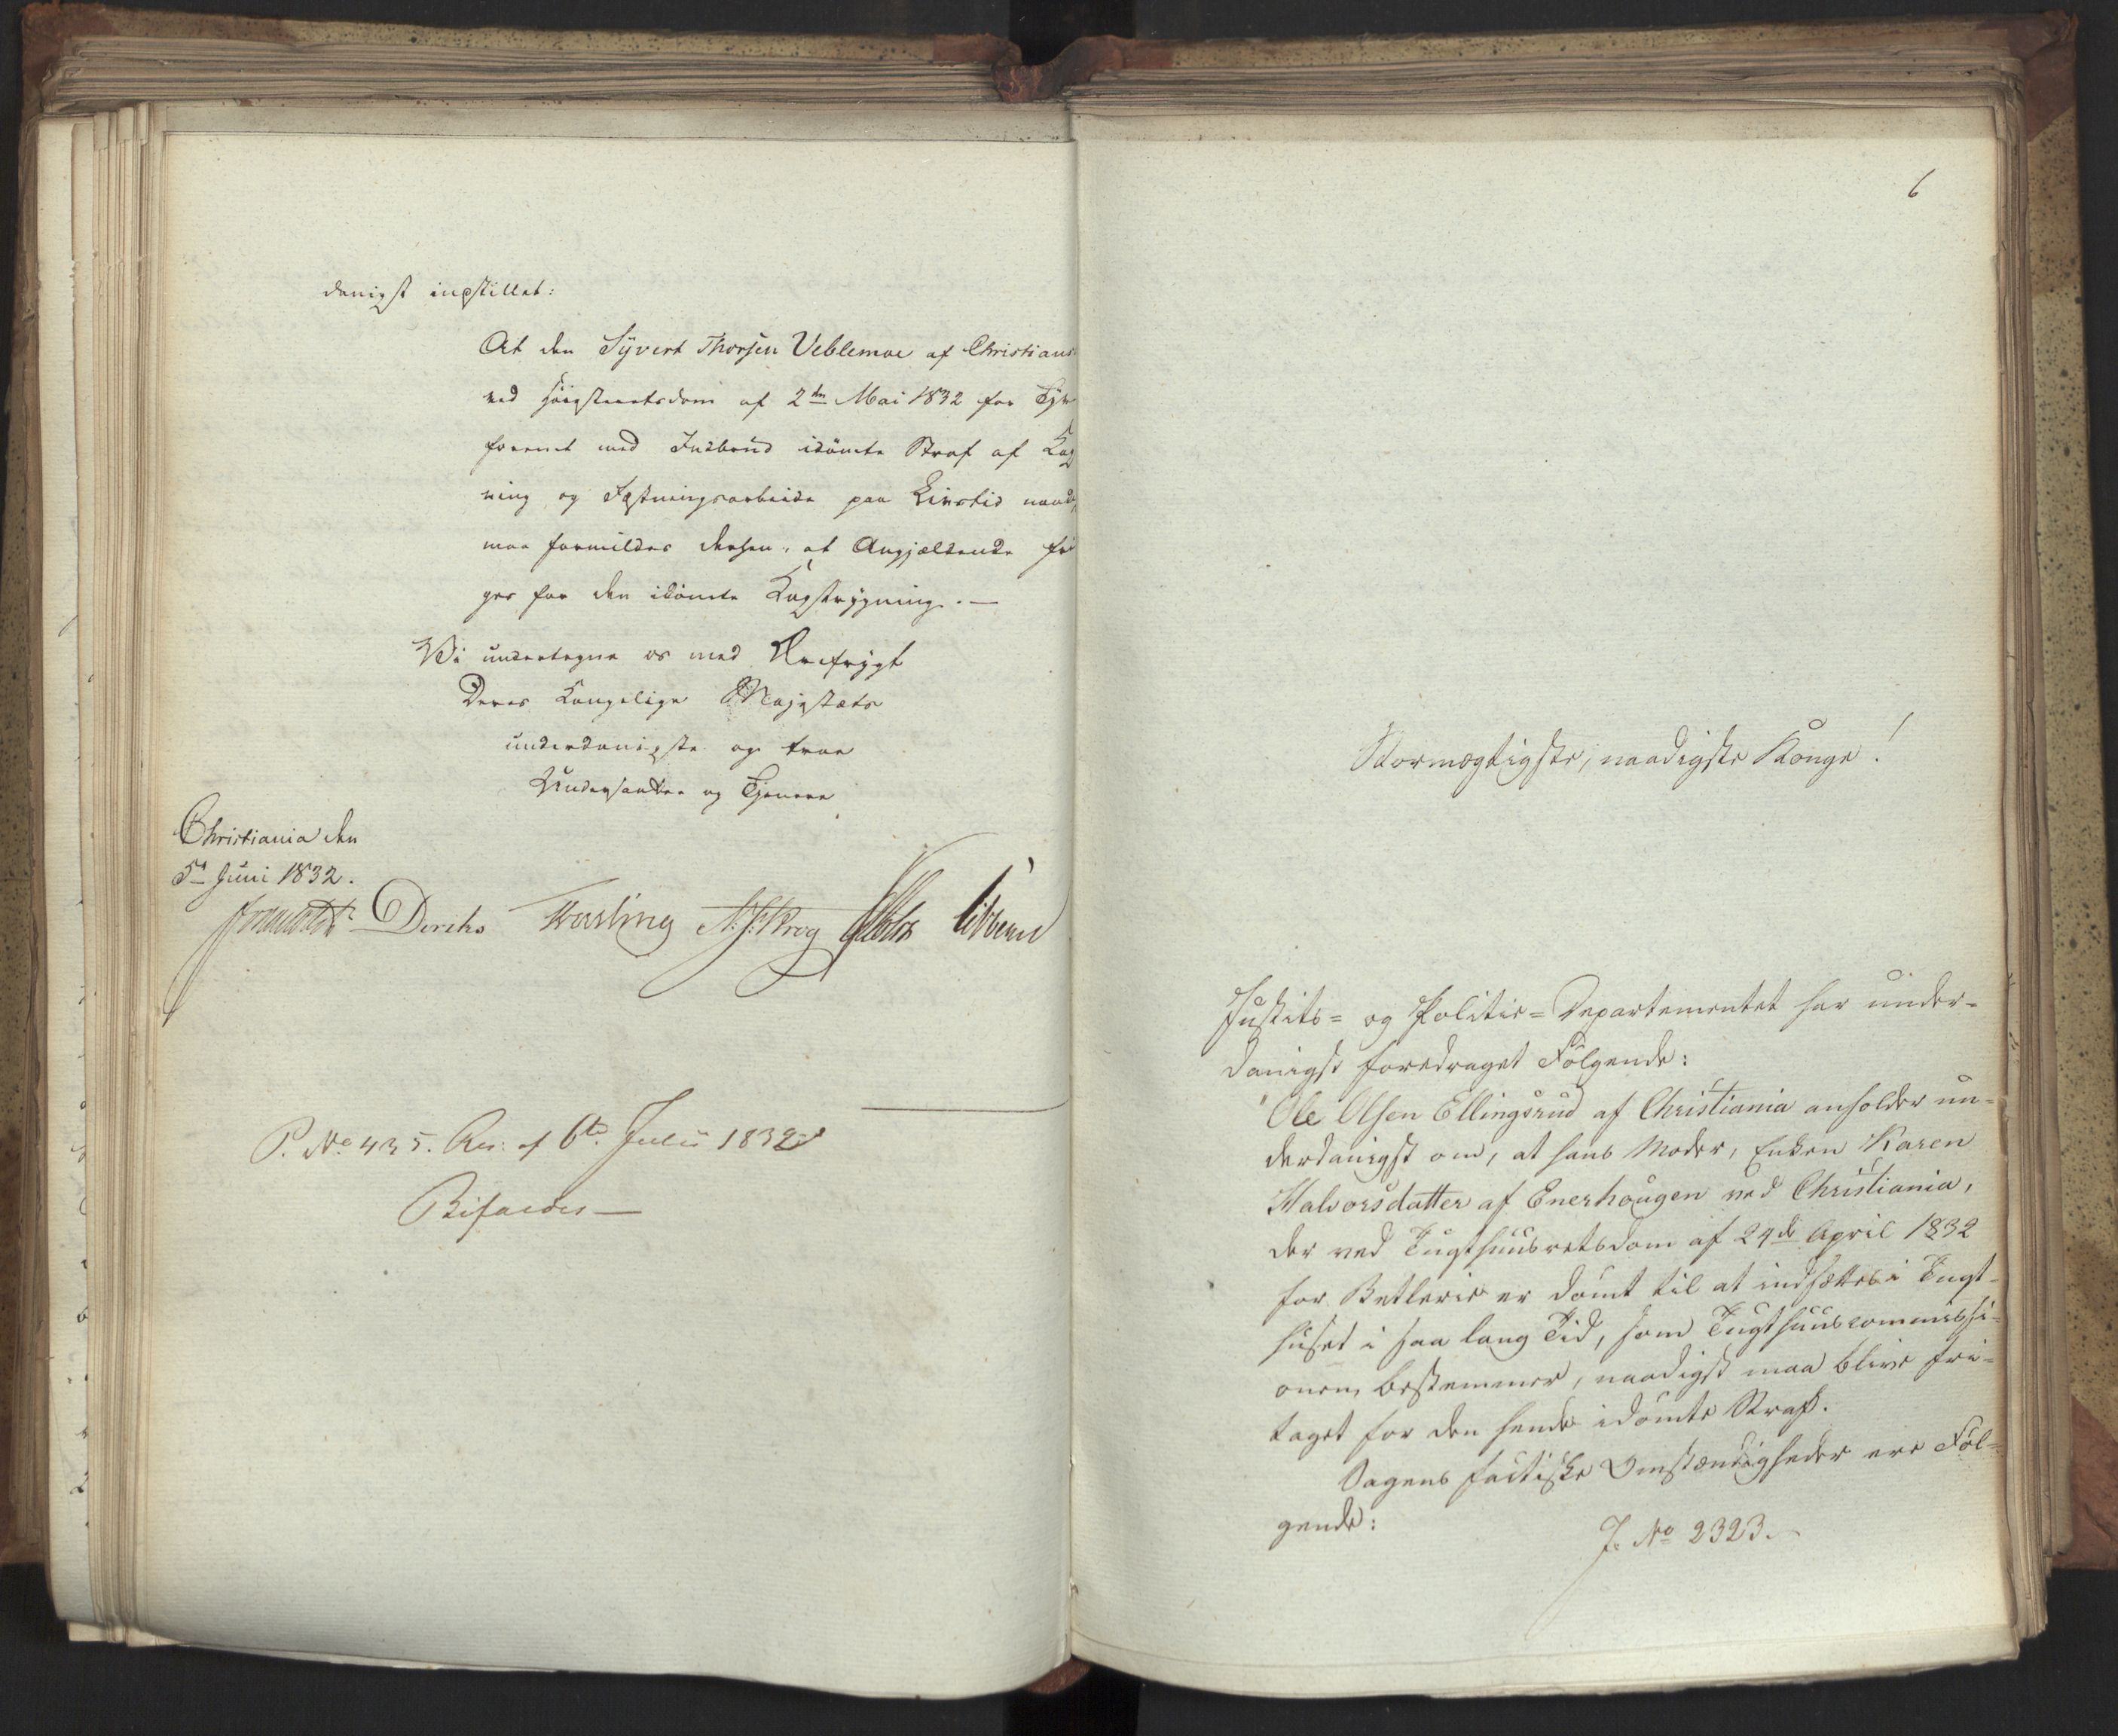 danigst indstillet:
At den Syvert Thorsen Veblemoe af Christians
ved Høiesteretsdom af 2den Mai 1832 for Tyv
forenet med Indbrud idømte Straf af Kag
ning og Fæstningsarbeide paa Livstid naad
maa formildes derhen, at Angjældende fri
ges for den idømte Kagstrygning. —
Vi undertegne os med Ærefrygt
Deres Kongelige Majestæts
underdanigste og troe
Undersaatter og Tjenere
Christiania den
5te Juni 1832.
Diriks Fasting Krog Vibe
P. No 435. Res: af 6te Julii 1832
Bifaldes —
6
Stormægtigste, naadigste Konge!
Justits= og Politie=Departementet har under=
danigst foredraget Følgende:
"Ole Olsen Ellingsrud af Christiania anholder un=
derdanigst om, at hans Moder, Enken Karen
Halvorsdatter af Enerhougen ved Christiania,
der ved Tugthuusretsdom af 24de April 1832
for Betlerie er dømt til at indsættes i Tugt=
huset i saa lang Tid, som Tugthuuscommissi=
onen bestemmer, naadigst maa blive fri=
taget for den hende idømte Straf.
Sagens factiske Omstændigheder ere Føl=
gende:
J. No 2323.